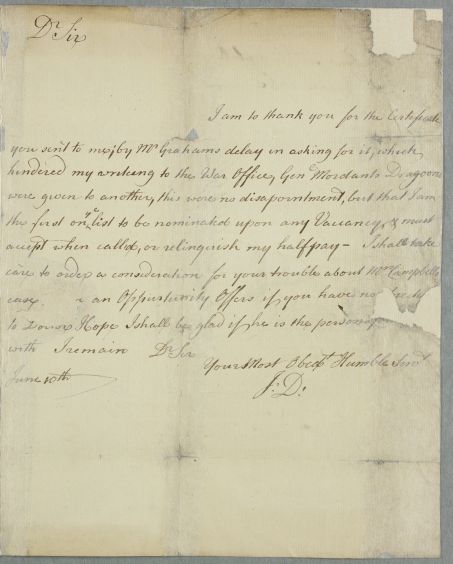 Dr Sir
I am to thank you for the Certificate
you sent to me, by Mr Grahams delay in asking for it, which
hindered my writeing to the War Office, Genl Mordants Dragoons
were given to another, this were no disapointment, but that I am
the first on ye list to be nominated upon any Vacancy, & must
accept when called, or relinquish my half pay - I shall take
care to order a consideration for your trouble about Mr Campbells
case. an Oppurtunity Offers if you have no
to Hope I shall be glad if he is the person
with I remain Dr Sir
Your Most Obedt Humble Servt
June 10th
J: D: